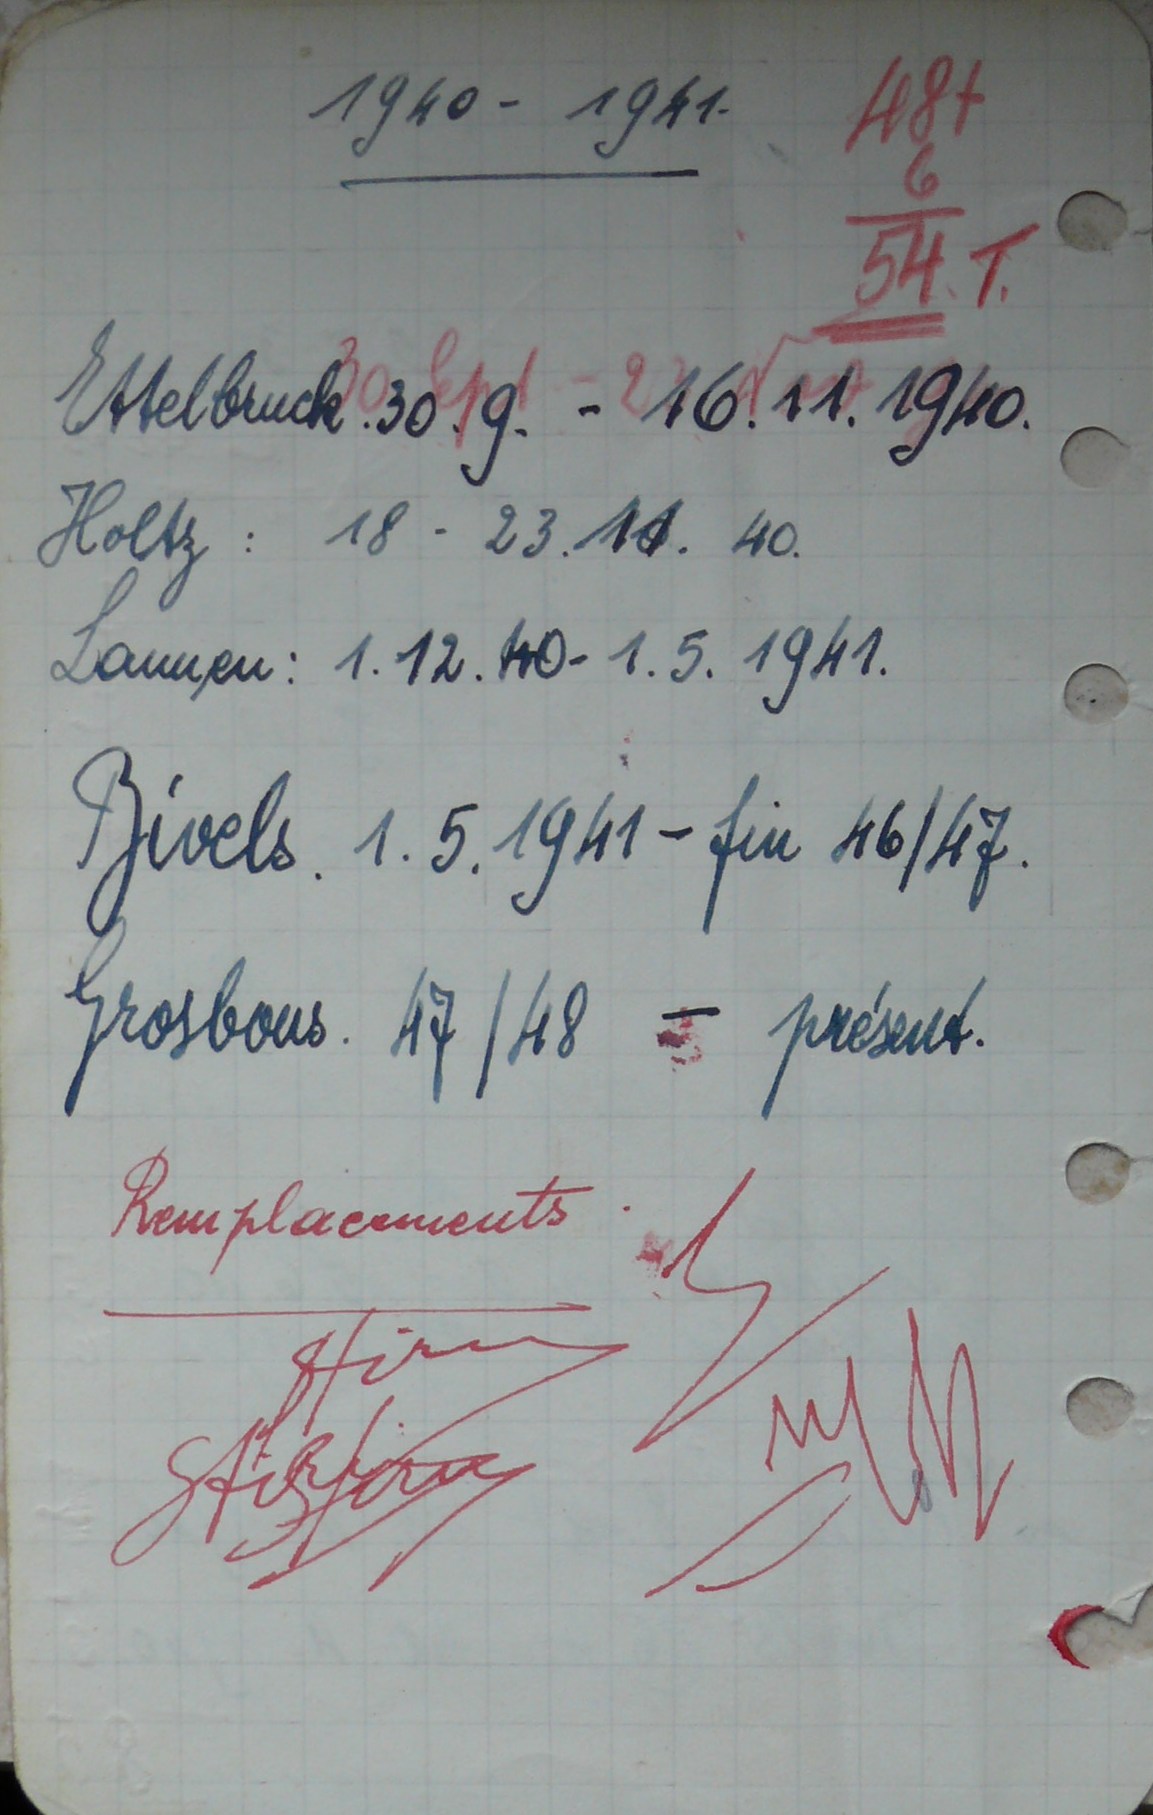 1940 - 1941.
48+
6
54. T.
Ettelbruck. 30. 9. - 16. 11. 1940.
Holtz : 18 - 23. 11. 40.
Lannen : 1. 12. 40 - 1. 5. 1941.
Bivels. 1. 5. 1941 - fin 46/47.
Grosbous. 47/48 - présent.
Remplacements.